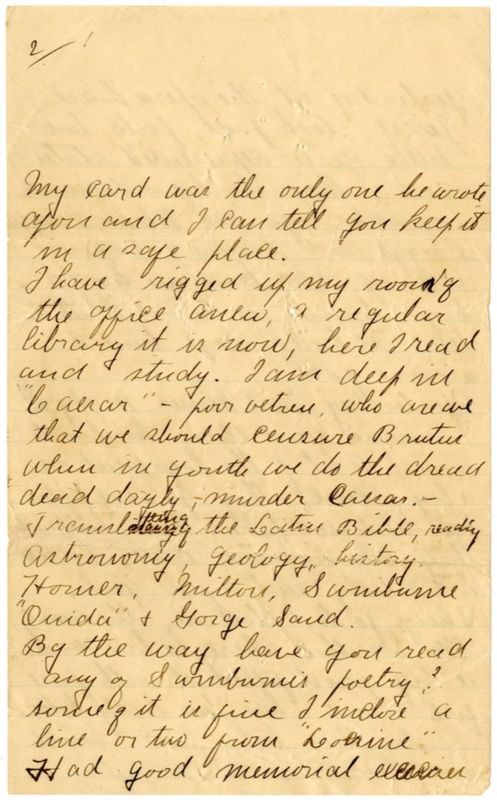 2/
My card was the only one he wrote
apon and I can tell you I keep it
in a safe place.
I have rigged up my room of
the office anew, a regular
library it is now, here I read
and study. I am deep in
"Caesar" - poor vetren, who are we
that we should censure Brutus
when in youth we do the dread
deed dayly, - murder Caesar. -
Translating the Latin Bible, reading
Astronomy, geology, history.
Homer, Milton, Swinburne
"Ouida" & Gorge Sand.
By the way have you read
any of Swinburnes poetry?
some of it is fine I inclose a
line or two from
Had good memorial